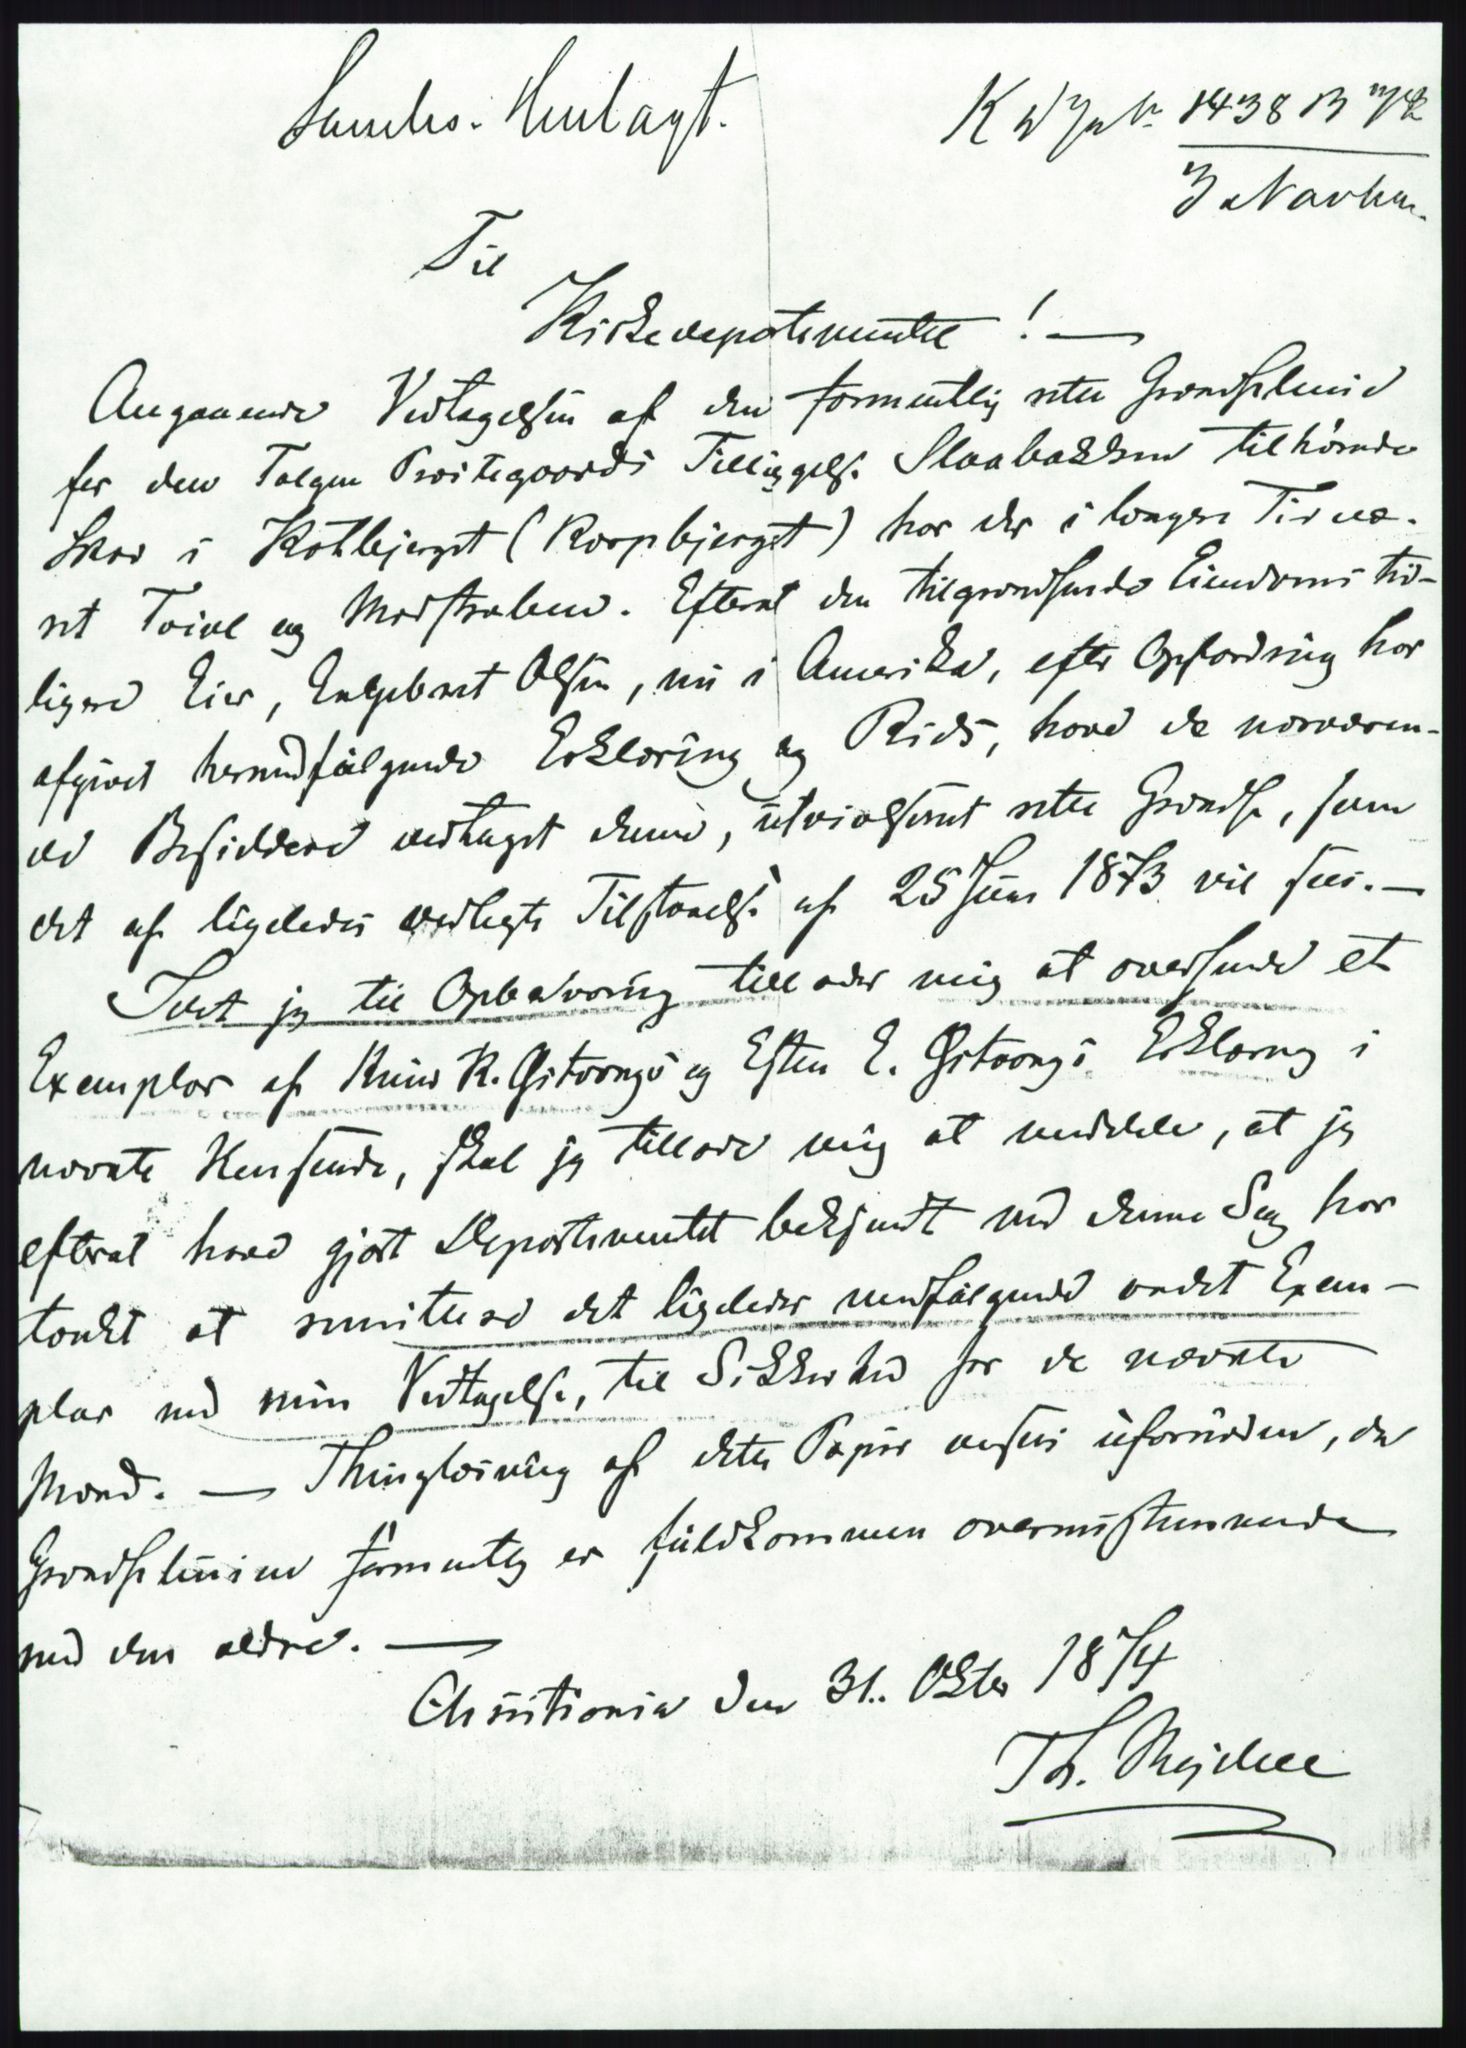 Henlagt.
1438 B 74
3 Novbr.
Til
Kirkedepartementet! —
Angaaende Vedtagelsen af den formentlig rette Grændselinie
for den Tolgen Præstegaards Tillæggelse Slaabakken tilhørende
Skov i Kølbjerget (Korpbjerget) har der i længere Tid væ-
ret Tvivl og Modstræben. Efterat den tilgrændsende Eiendoms tid-
ligere Eier, Engebret Olsen, nu i Amerika, efter Opfordring har
afgivet hermedfølgende Erklæring og Rids, have de nærværen-
de Besiddere vedtaget denne, utvivlsomt rette Grændse, som
det af ligeledes vedlagte Tilstaaelse af 25 Juni 1873 vil sees. —
Idet jeg til Opbevaring tillader mig at oversende et
Exemplar af Knud K. Østvangs og Esten E. Østvangs Erklæring i
nævnte Henseende, skal jeg tillade mig at meddele, at jeg
efterat have gjort Departementet bekjendt med denne Sag har
tænkt at remittere det ligeledes medfølgende andet Exem-
plar med min Vedtagelse, til Sikkerhed for de nævnte
Mænd. — Thinglæsning af dette Papir ansees ufornøden, da
Grændselinien formentlig er fuldkommen overensstemmende
med den ældre. —
Christiania den 31. Okter 1874
Th.